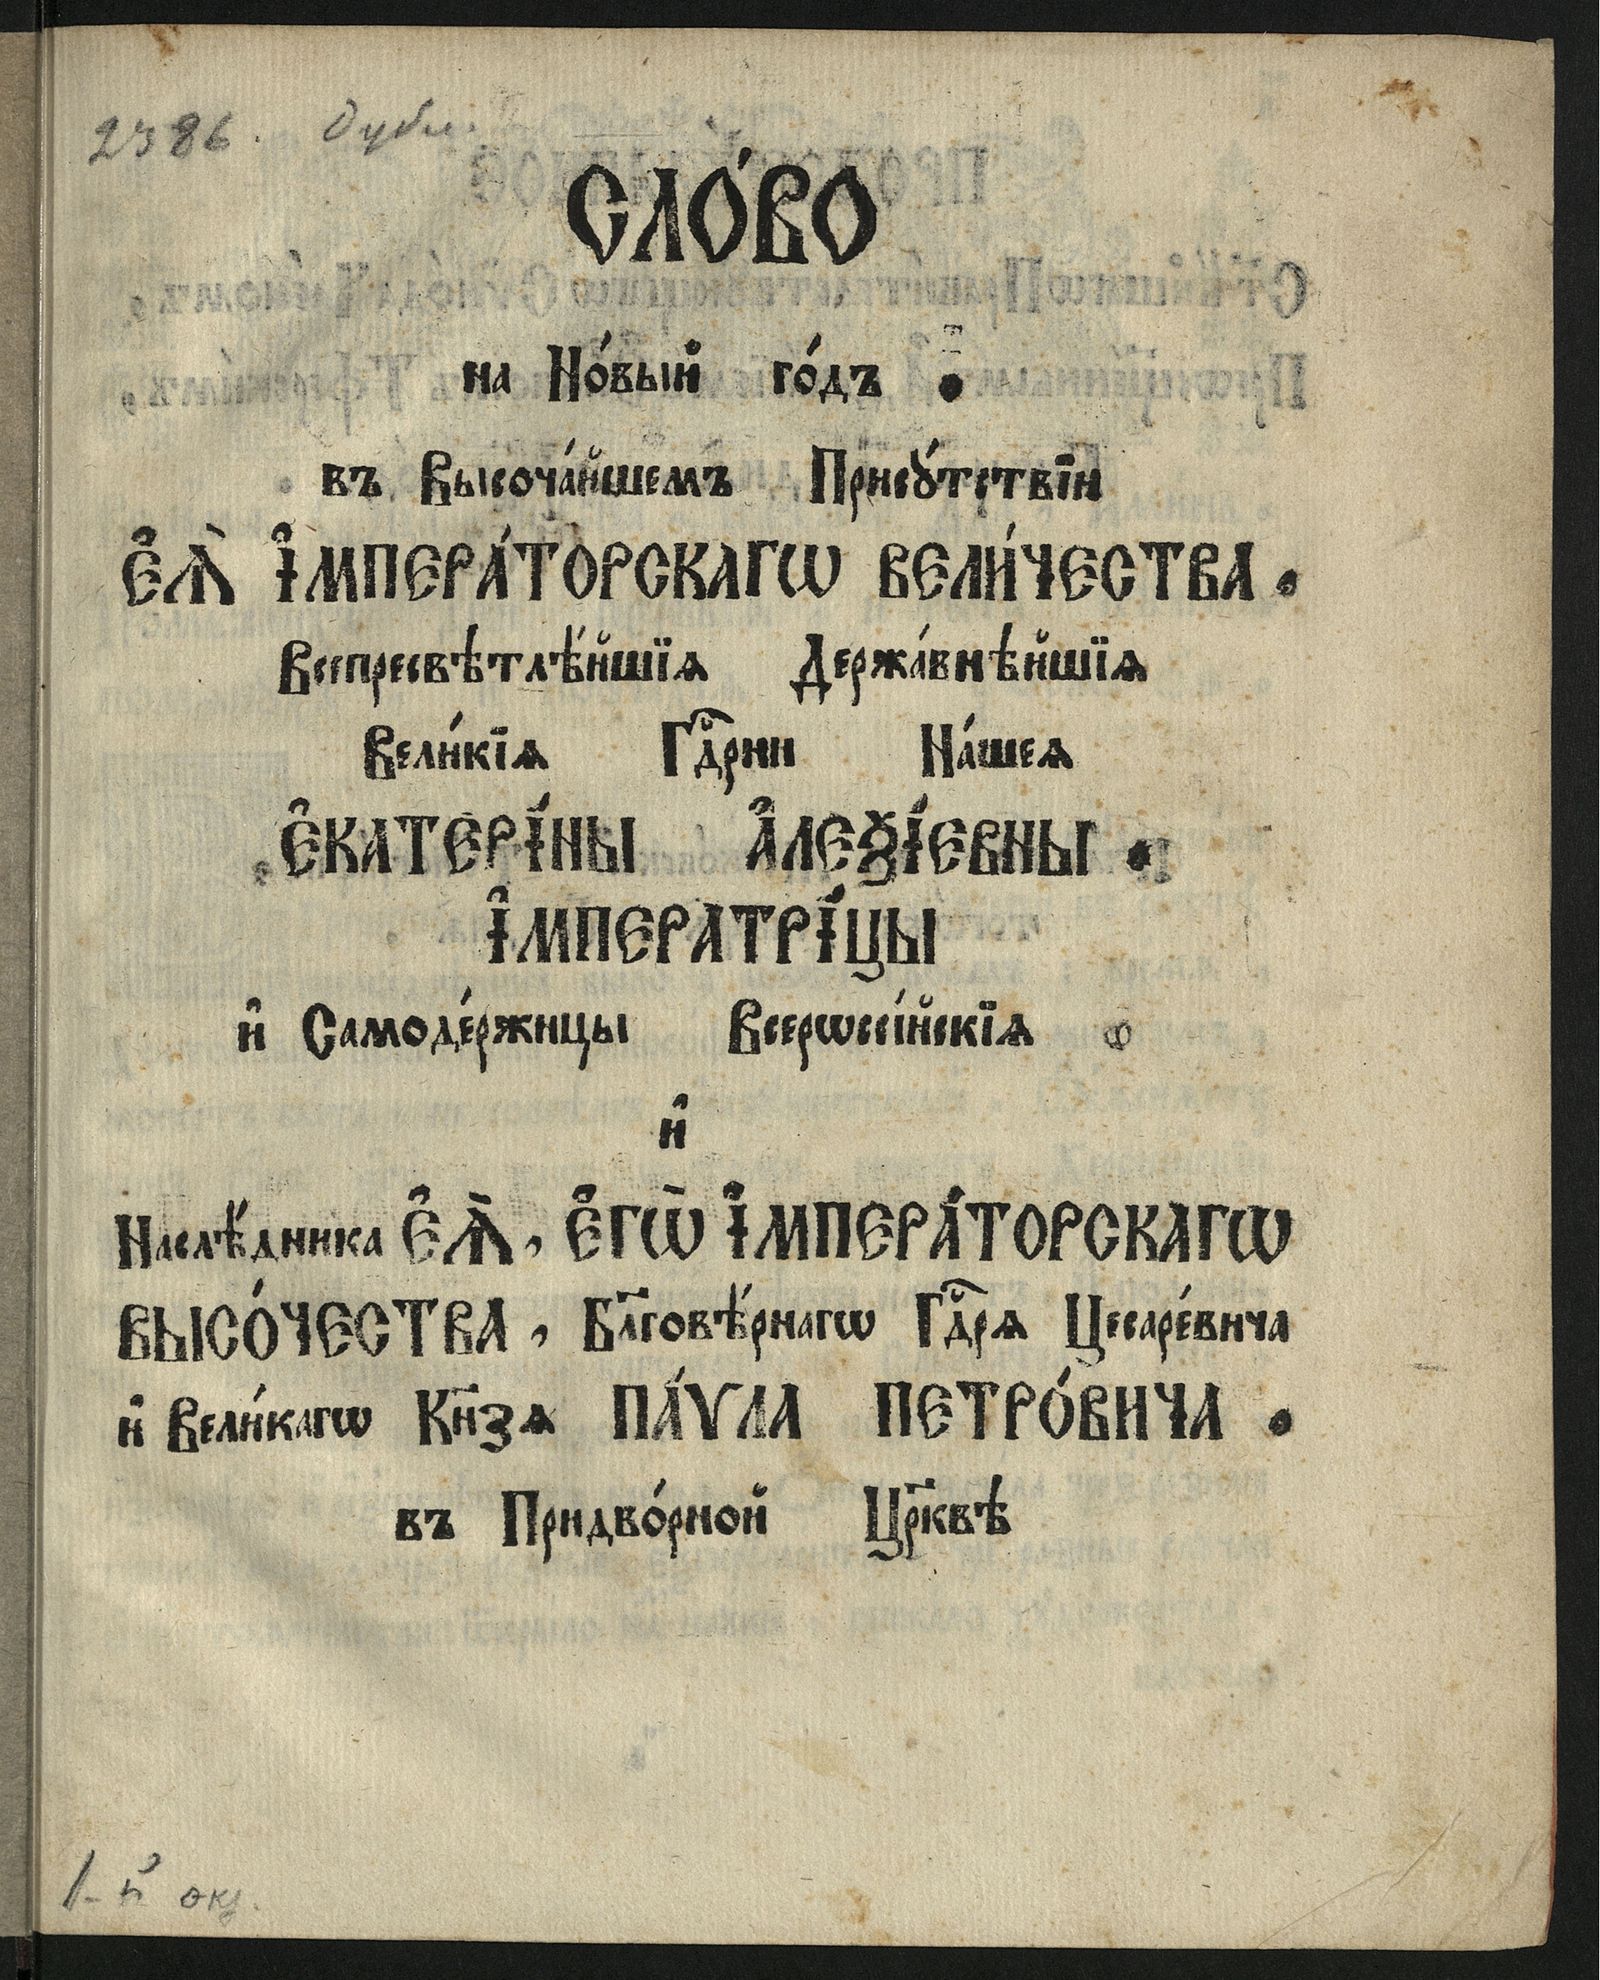 2386. Дубл.
СЛО́ВО
на Но́вый го́дъ .
въ Высоча́йшемъ Прису́тствїи
Є҆Ѧ̀ І҆МПЕРА́ТОРСКАГѠ ВЕЛИ́ЧЕСТВА .
Всепресвѣтлѣ́йшїѧ Держа́внѣйшїѧ
Вели́кїѧ Гдⷭ҇рни На́шеѧ
Є҆КАТЕРІ́НЫ А҆ЛЕѮІ́ЕВНЫ .
І҆МПЕРАТРІ́ЦЫ
и҆ Самоде́ржицы Всерѡссі́йскїѧ
и҆
Наслѣ́дника Є҆Ѧ̀ , Є҆ГѠ̀ І҆МПЕРА́ТОРСКАГѠ
ВЫСО́ЧЕСТВА , Бл҃говѣ́рнагѡ Гдⷭ҇рѧ Цесаре́вича
и҆ Вели́кагѡ Кн҃зѧ ПА́ѴЛА ПЕТРО́ВИЧА .
въ Придво́рной Цр҃квѣ́
1-й экз.